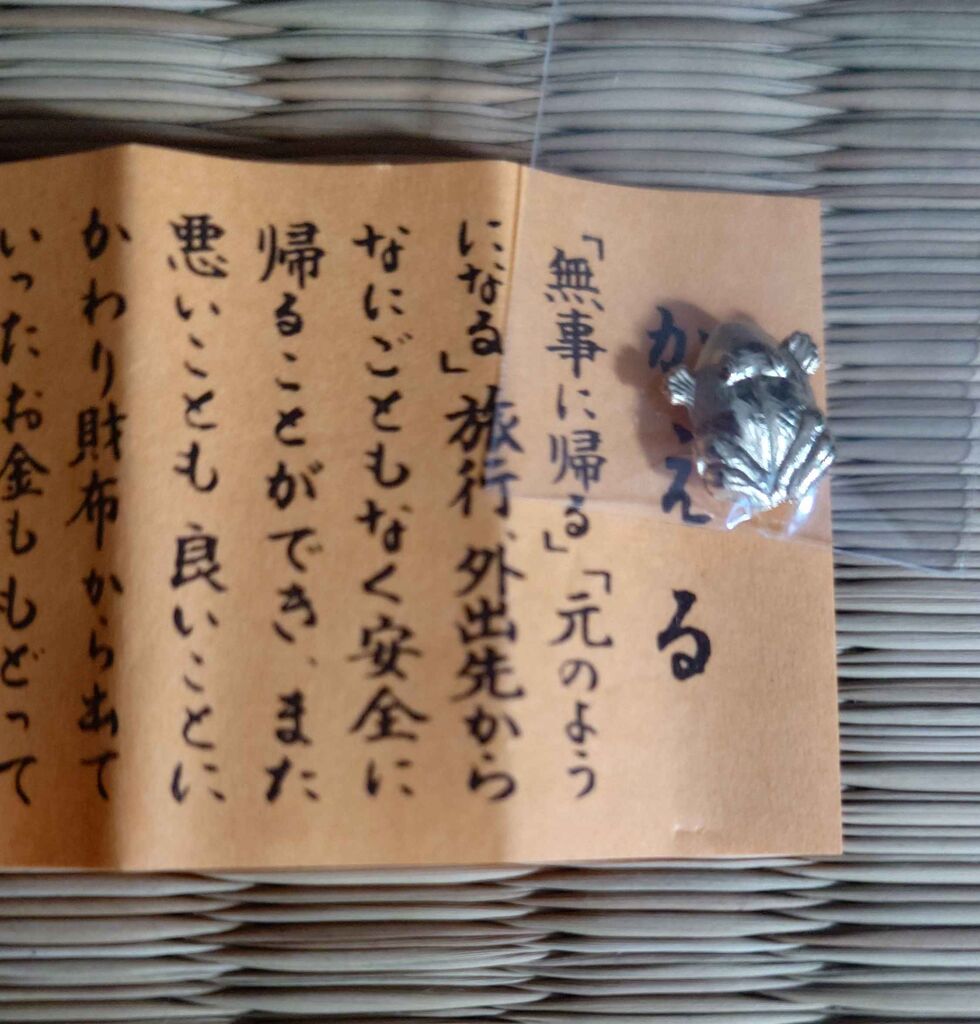 かえる
「無事に帰る」「元のよう
になる」旅行、外出先から
なにごともなく安全に
帰ることができ、また
悪いことも良いことに、
かわり財布から出て
いったお金ももどって